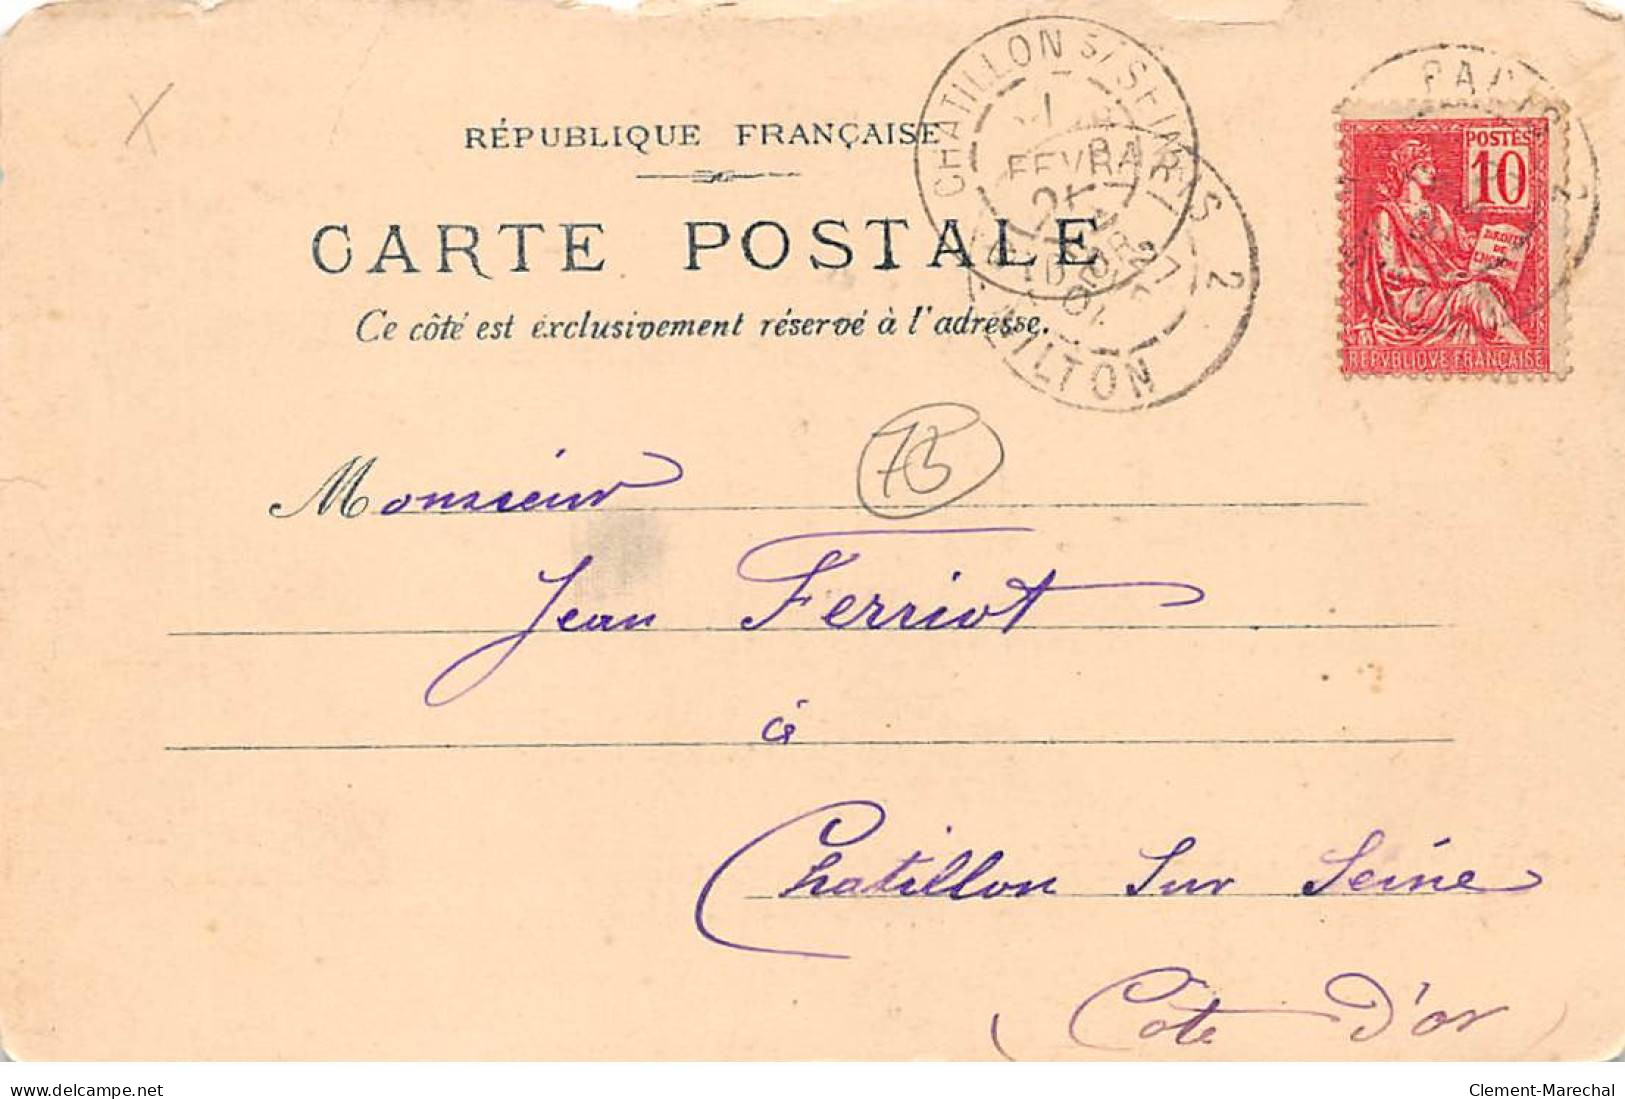 RÉPUBLIQUE FRANÇAISE
CARTE POSTALE
Ce côté est exclusivement réservé à l'adresse.
CHATILLON S/ SEINE
FEVR
PARIS 2
MILTON
POSTES
10
DROITS
DE
L'HOMME
REPVBLIQVE FRANÇAISE
75
Monsieur
Jean Ferriot
à
Chatillon sur Seine
(Cote D'or)
www.delcampe.net
Clement-Marechal